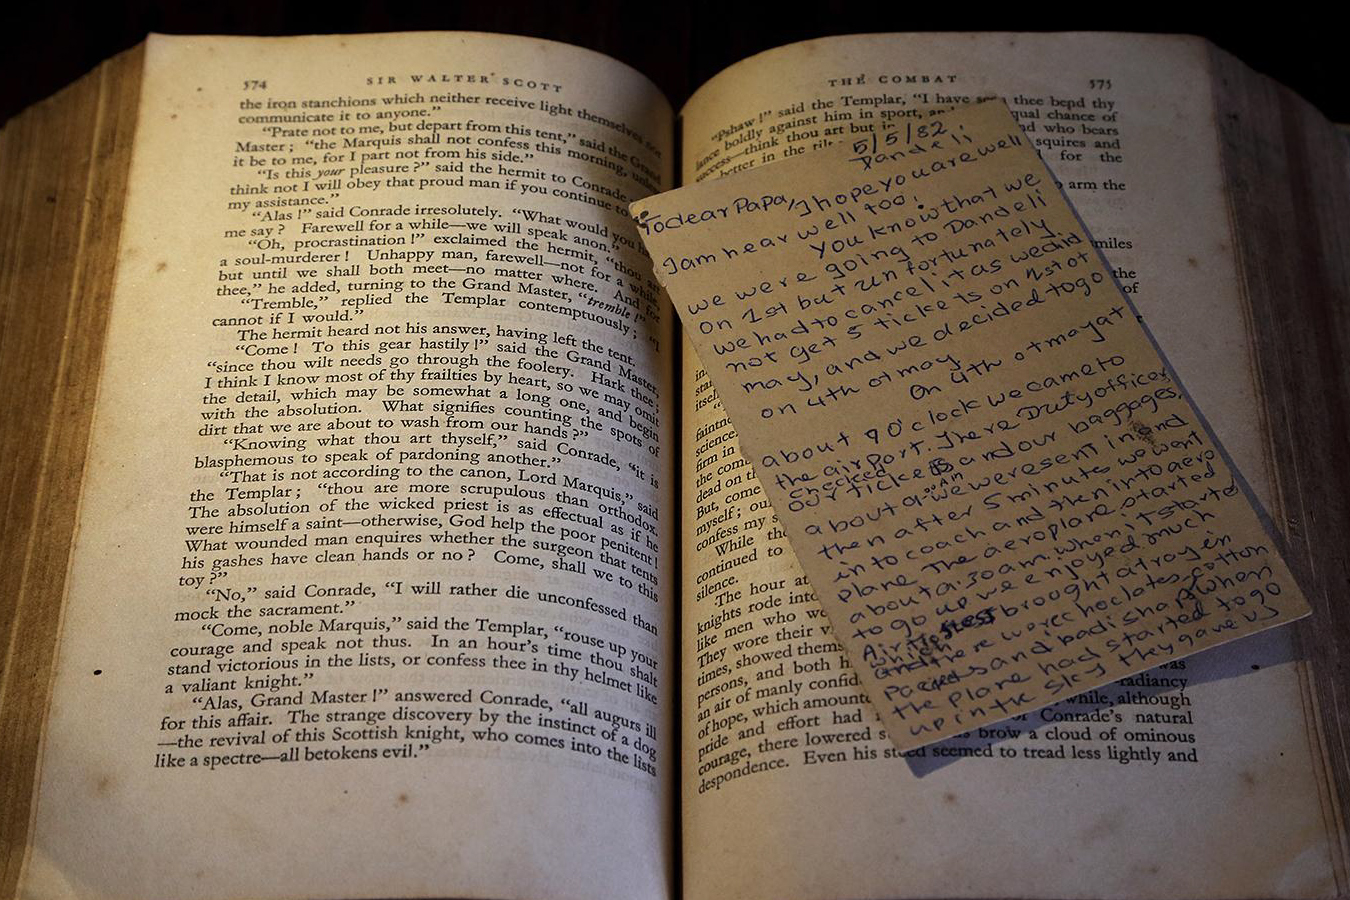 574
SIR WALTER SCOTT
the iron stanchions which neither receive light themselves nor
communicate it to anyone."
"Prate not to me, but depart from this tent," said the Grand
Master; "the Marquis shall not confess this morning, unless
it be to me, for I part not from his side."
"Is this your pleasure?" said the hermit to Conrade;
think not I will obey that proud man if you continue to
my assistance."
"Alas!" said Conrade irresolutely. "What would you have
me say? Farewell for a while—we will speak anon."
"Oh, procrastination!" exclaimed the hermit, "thou art
a soul-murderer! Unhappy man, farewell—not for a while,
but until we shall both meet—no matter where. And for
thee," he added, turning to the Grand Master, "tremble!"
"Tremble," replied the Templar contemptuously; "I
cannot if I would."
The hermit heard not his answer, having left the tent.
"Come! To this gear hastily!" said the Grand Master,
"since thou wilt needs go through the foolery. Hark thee;
I think I know most of thy frailties by heart, so we may omit
the detail, which may be somewhat a long one, and begin
with the absolution. What signifies counting the spots of
dirt that we are about to wash from our hands?"
"Knowing what thou art thyself," said Conrade, "it is
blasphemous to speak of pardoning another."
"That is not according to the canon, Lord Marquis," said
the Templar; "thou are more scrupulous than orthodox.
The absolution of the wicked priest is as effectual as if he
were himself a saint—otherwise, God help the poor penitent!
What wounded man enquires whether the surgeon that tents
his gashes have clean hands or no? Come, shall we to this
toy?"
"No," said Conrade, "I will rather die unconfessed than
mock the sacrament."
"Come, noble Marquis," said the Templar, "rouse up your
courage and speak not thus. In an hour's time thou shalt
stand victorious in the lists, or confess thee in thy helmet like
a valiant knight."
"Alas, Grand Master!" answered Conrade, "all augurs ill
for this affair. The strange discovery by the instinct of a dog
—the revival of this Scottish knight, who comes into the lists
like a spectre—all betokens evil."
THE COMBAT
575
"Pshaw!" said the Templar, "I have seen thee bend thy
lance boldly against him in sport, equal chance of
success—think thou art but in and who bears
better in the squires and
for the
arm the
smiles
the
of
in
itself
science.
firm in
dead on
But, come
myself; our
confess my
While the
continued to
silence.
The hour
knights rode into
like men who
They wore their
times, showed
persons, and both
an air of manly
of hope, which was
pride and effort had radiancy
courage, there lowered while, although
despondence. Conrade's natural
brow a cloud of ominous
Even his steed seemed to tread less lightly and
5/5/82
Dandeli
To dear Papa, I hope you are well
I am hear well too!
You know that we
we were going to Dandeli
on 1st but unfortunately
we had to cancel it as we did
not get 5 tickets on 1st of
may, and we decided to go
on 4th of may.
On 4th of may at
about 9 O'clock we came to
the airport. There Duty officer
checked
our tickets and our baggages,
about we were sent in and
then after 5 minutes we went
into coach and then into aero
plane The aeroplane started
about 9.30 am. when it started
to go up we enjoyed much
Airhostess brought a tray in
which
and there were choclates, cotton
and badishap. When
the plane had started to go
up in the sky they gave us